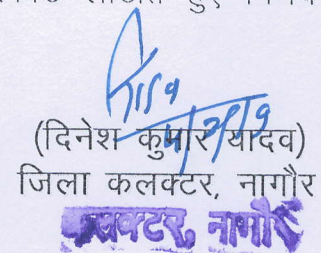 हुए
(दिनेश कुमार यादव)
जिला कलक्टर, नागौर
कलक्टर, नागौर